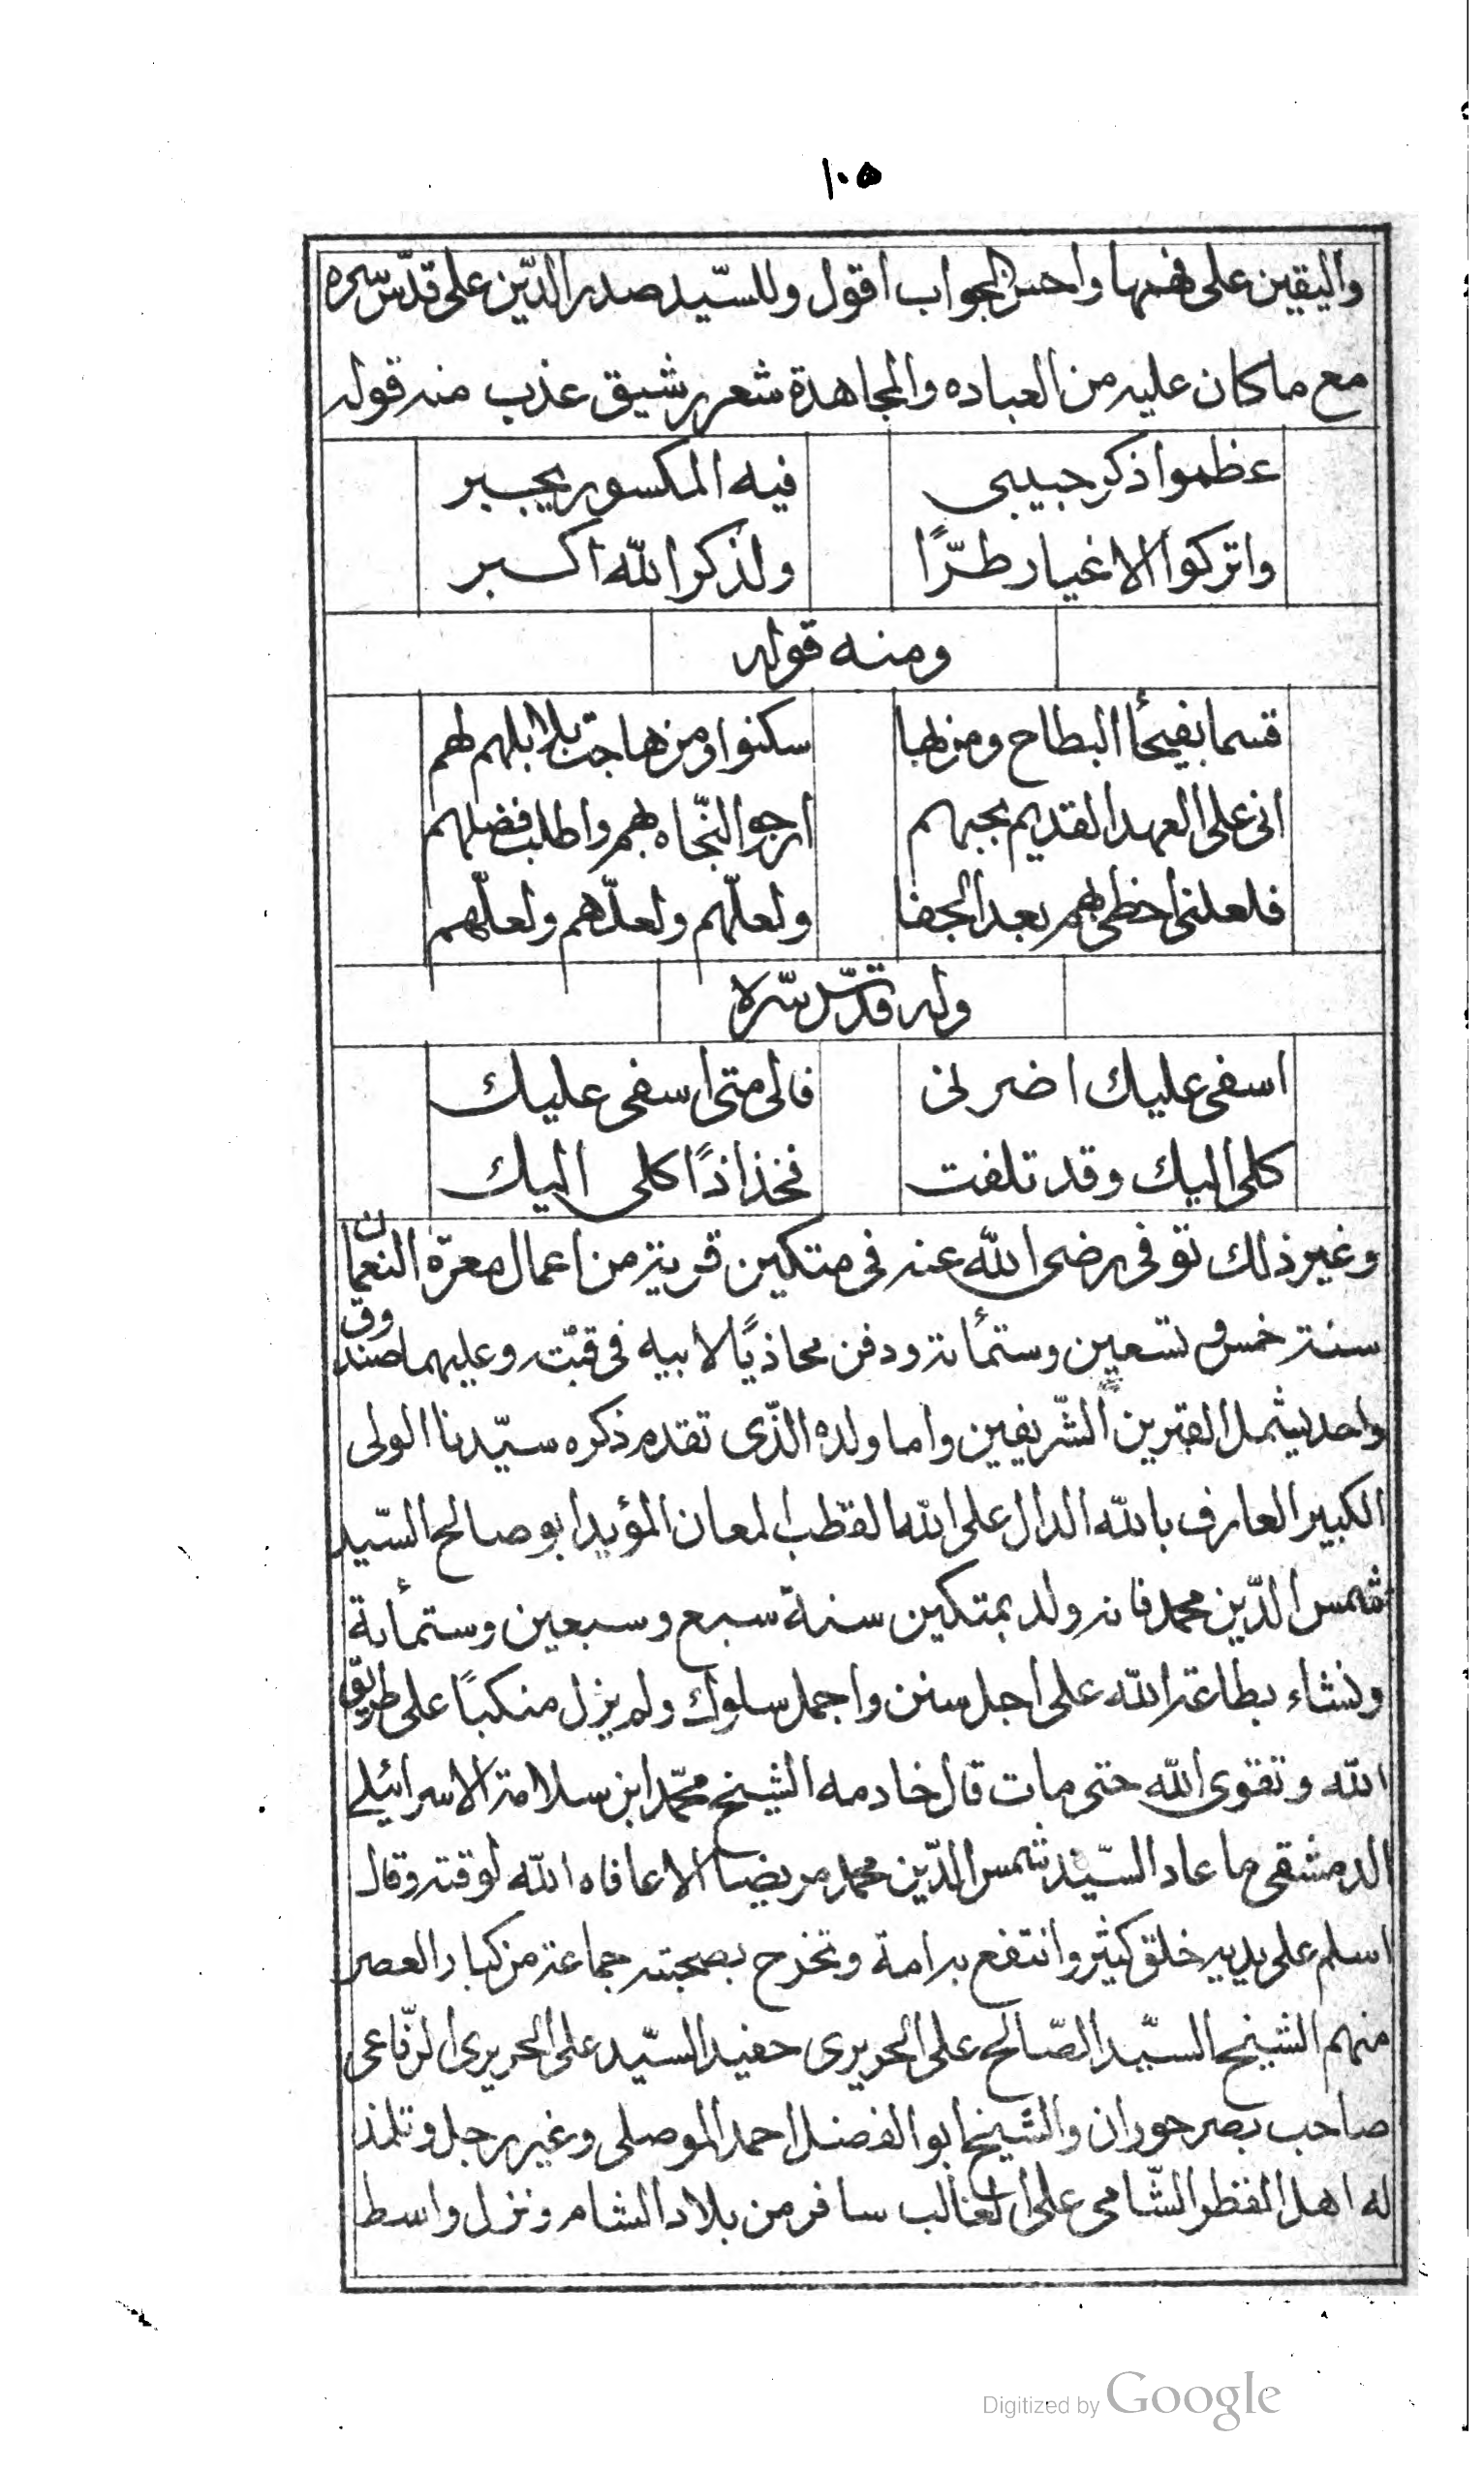 ١٠٥
واليقين على فهمها واحسن الجواب اقول وللسّيد صدر الدّين على قدّس سره
مع ما كان عليه من العباده والمجاهدة شعر رشيق عذب منه قوله
عظموا ذكر حبيبى فيه المكسور يجبر
واتركوا الاغيار طرًّا ولذكر الله اكبر
ومنه قوله
قسما بفيحأ البطاح ومن بها سكنوا ومن هاجت بلابلهم لهم
انى على العهد القديم بحبهم ارجو النّجاه بهم واطلب فضلهم
فلعلنى احظى بهم بعد الجفا ولعلّهم ولعلّهم ولعلّهم
وله قدّس سّره
اسفى عليك اضر لى فالى متى اسفى عليك
كلى اليك وقد تلفت فخذ اذًا كلى اليك
وغير ذلك توفى رضى الله عنه فى متكين قرية من اعمال معرّة النعمان
سنة خمس وتسعين وستمأئة ودفن محاذيًا لابيه فى قبته وعليهما صندوق
واحد يشمل القبرين الشّريفين واما ولده الذّى تقدم ذكره سيّدنا الولى
الكبير العارف بالله الدال على الله القطب المعان المؤيد ابو صالح السّيد
شمس الدّين محمد فانه ولد بمتكين سنة سبع وسبعين وستمأئة
ونشاء بطاعة الله على اجل سنن واجمل سلوك ولم يزل منكبًا على طريق
الله وتقوى الله حتى مات قال خادمه الشيخ محمّد ابن سلامة الاسرائيلى
الدمشقى ما عاد السّيد شمس الدّين محمد مريضا الا عافاه الله لوقته وقال
اسلم على يديه خلق كثير وانتفع به امة وتخرج بصحبته جماعة من كبار العصر
منهم الشيخ السّيد الصّالح على الحريرى حفيد السّيد على الحريرى الرّفاعى
صاحب بصر حوران والشيخ ابو الفضل احمد الموصلى وغير رجل وتلمذ
له اهل القطر الشّامى على الغالب سافر من بلاد الشام ونزل واسط
Digitized by Google